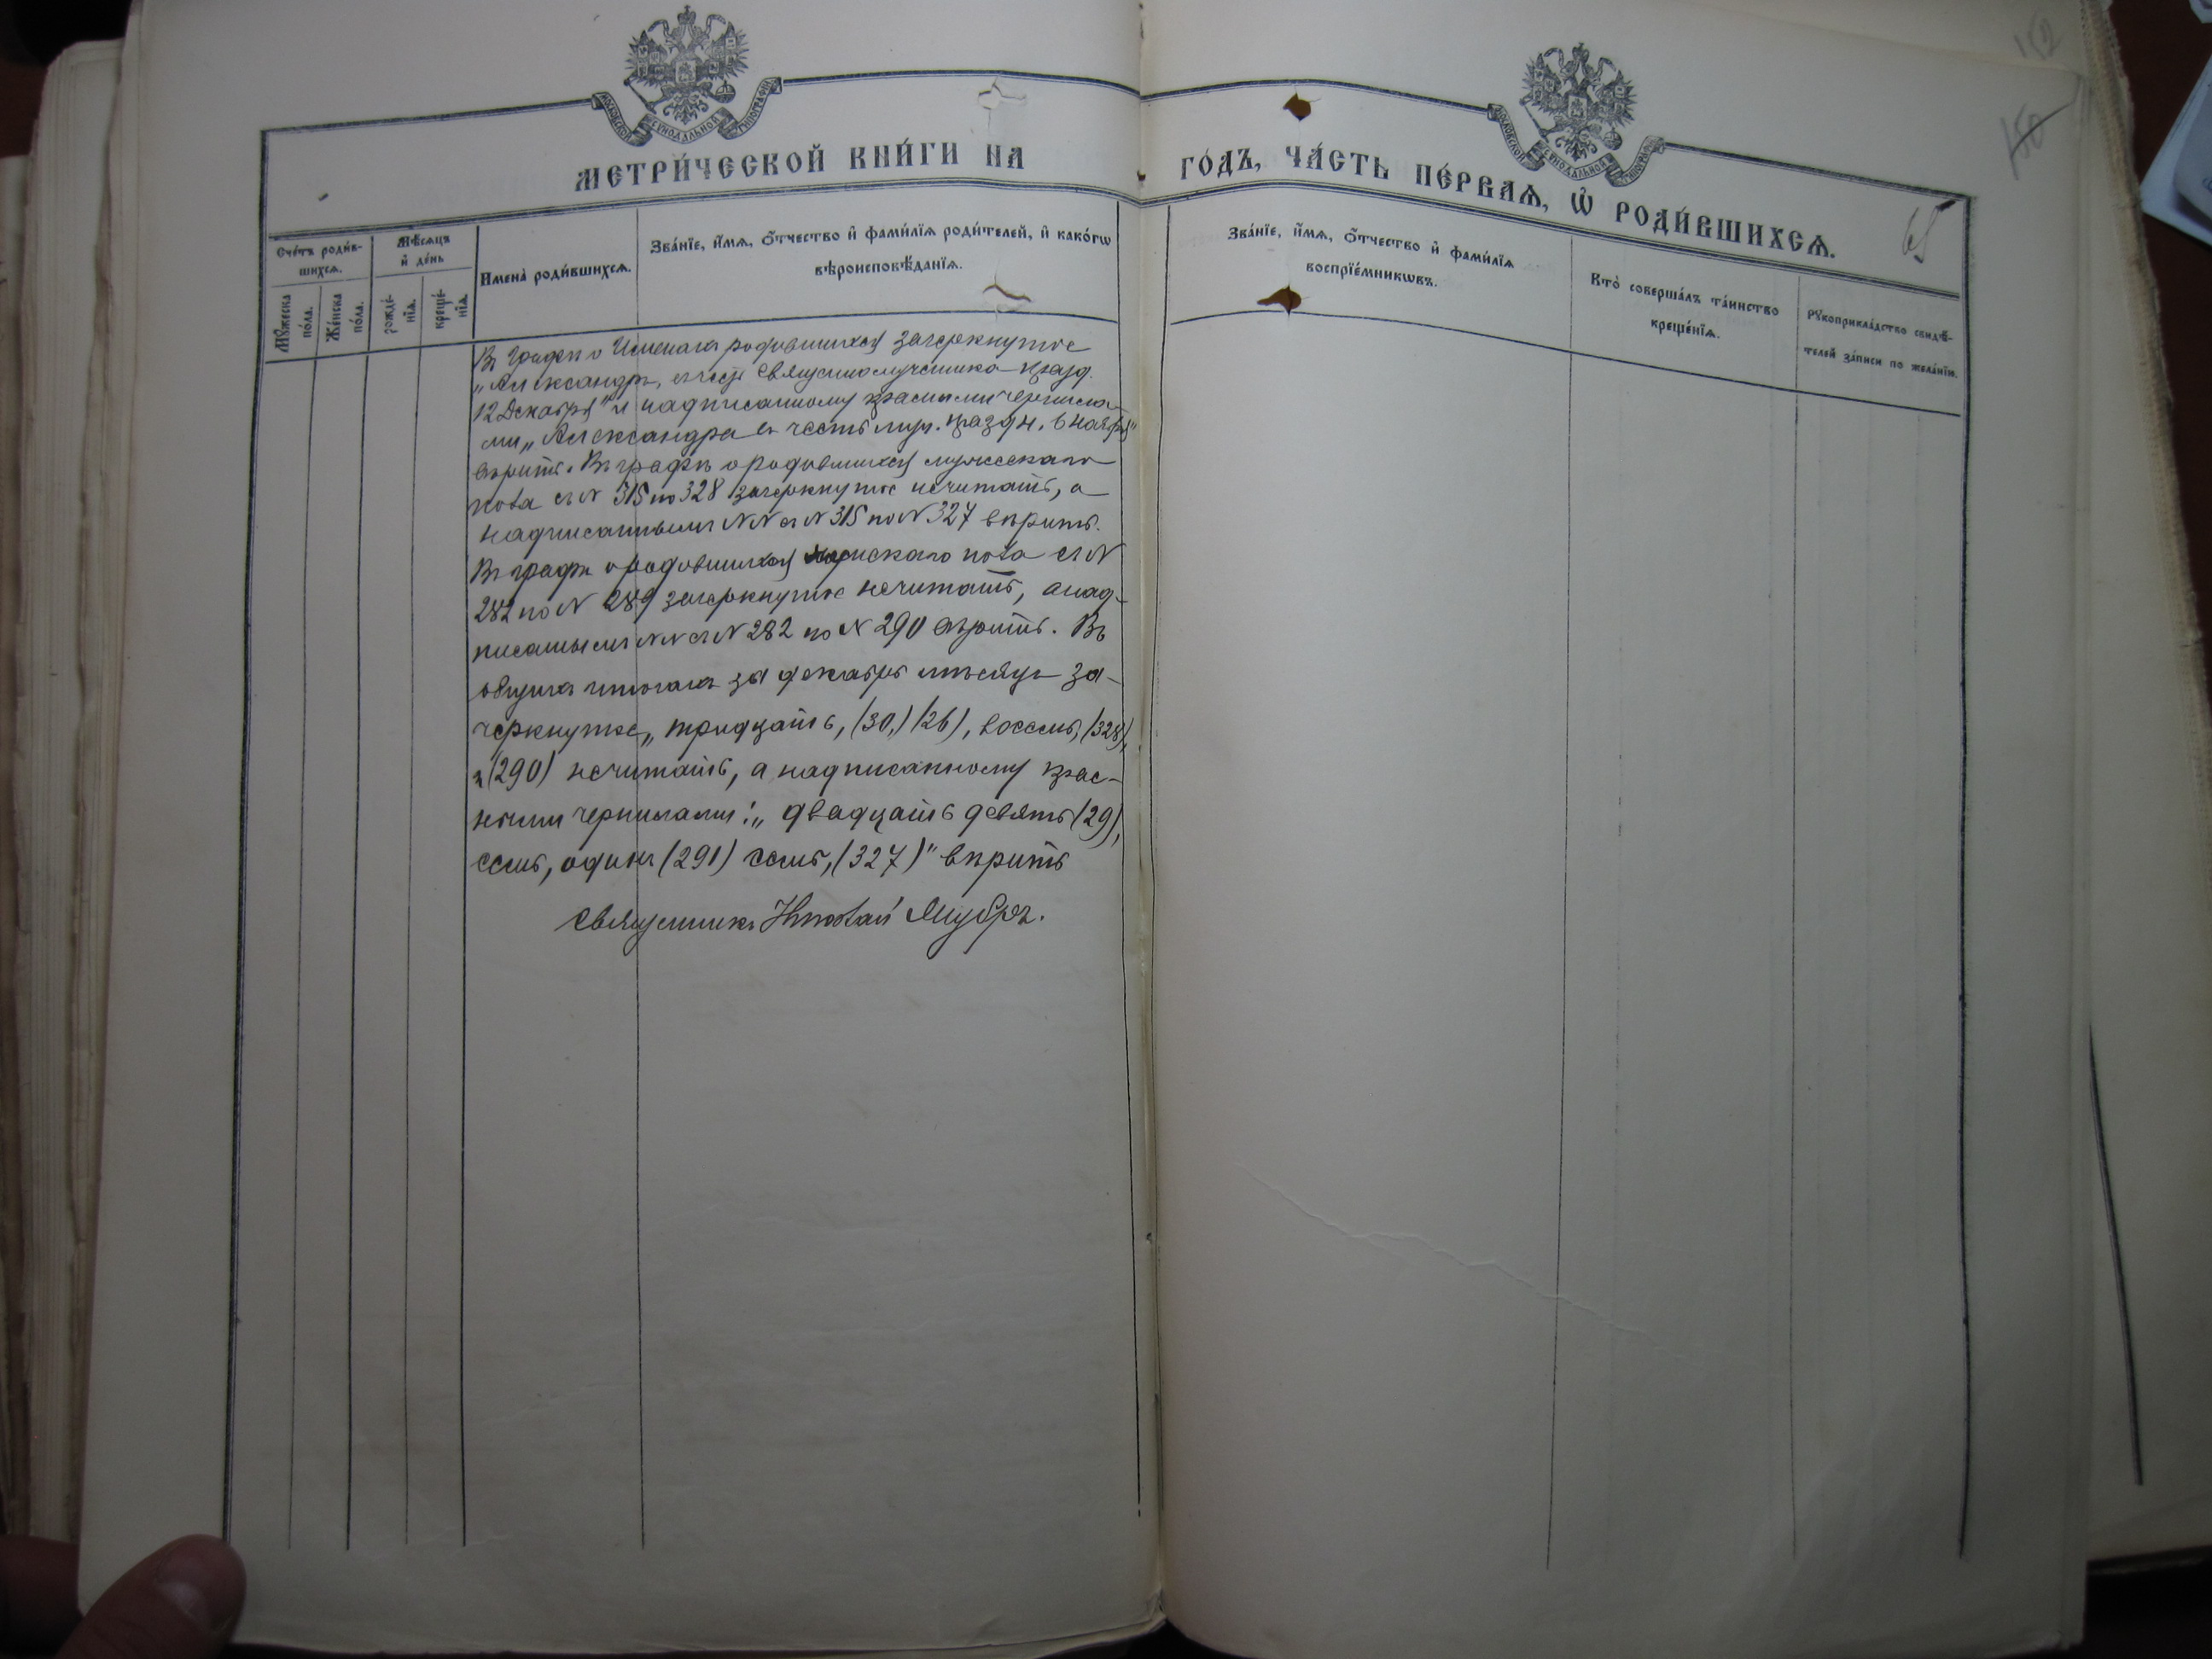 МОСКОВСКОЙ СУНОДАЛЬНОЙ ТИПОГРАФІИ
МОСКОВСКОЙ СУНОДАЛЬНОЙ ТИПОГРАФІИ
МЕТРИ́ЧЕСКОЙ КНИ́ГИ НА ГО́ДЪ, ЧА́СТЬ ПЕ́РВАѦ, Ѡ҆ РОДИ́ВШИХСѦ.
152
150
65
Сче́тъ роди́в-
шихсѧ.
Мѣ́сѧцъ
и҆ де́нь
Мꙋ́жеска
по́ла.
Же́нска
по́ла.
рожде́-
нїѧ.
креще́-
нїѧ.
Имена̀ роди́вшихсѧ.
Зва́нїе, и҆́мѧ, ѻ҆́тчество и҆ фами́лїѧ роди́телей, и҆ како́гѡ
вѣроисповѣ́данїѧ.
Зва́нїе, и҆́мѧ, ѻ҆́тчество и҆ фами́лїѧ
воспрїе́мникѡвъ.
Кто̀ соверша́лъ та́инство
креще́нїѧ.
Рꙋкоприкла́дство свидѣ́-
телей за́писи по жела́нїю.
Въ графѣ о Именахъ родившихся зачеркнутое
„Александръ, въ честь Священномученика празд.
12 Декабря" и надписанному красными чернила-
ми „Александра въ честь муч. праздн. 6 ноября"
вѣрить. Въ графѣ о родившихся мужескаго
пола съ N 315 по 328 зачеркнутое нечитать, а
надписаннымъ NN съ N 315 по N 327 вѣрить.
Въ графѣ о родившихся женскаго пола съ N
282 по N 289 зачеркнутое нечитать, а над-
писаннымъ NN съ N 282 по N 290 вѣрить. Въ
общихъ итогахъ за декабрь мѣсяцъ за-
черкнутое „тридцать, (30,) (26), восемь, (328),
и (290) нечитать, а надписанному крас-
ными чернилами: „двадцать девять (29),
семь, одинъ (291) семь, (327)" вѣрить
Священникъ Николай